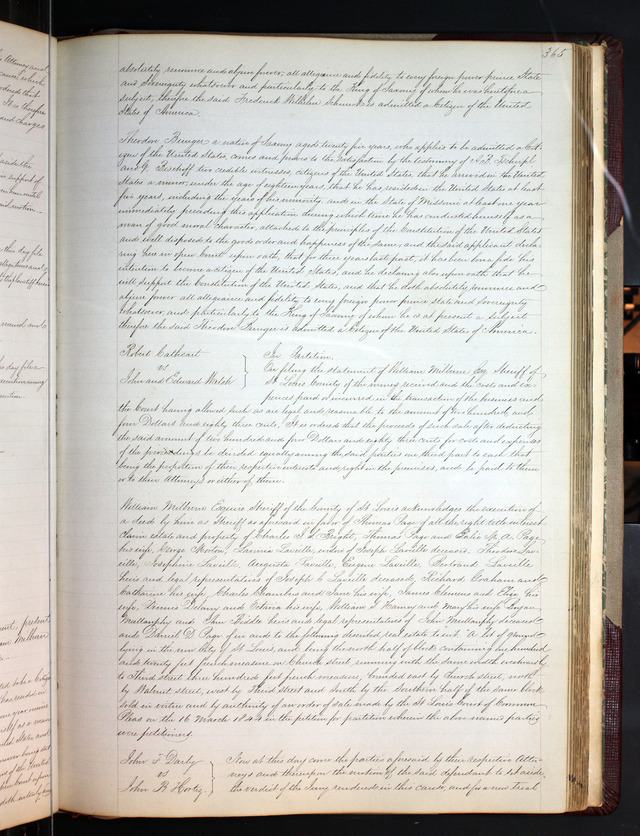 365
absolutely renounce and abjure forever, all allegiance and fidelity to every foreign power prince State
and Sovereignty whatsoever and particularly to the King of Saxony of whom he was heretofore a
subject, therefore the said Frederick William is admitted a Citizen of the United
States of America.
Theodore Bunger a native of Saxony aged twenty five years, who applies to be admitted a Cit-
izen of the United States comes and proves to the Satisfaction by the testimony of
and G. Bischoff two credible witnesses, citizens of the United States, that he arrived in the United
States a minor, under the age of eighteen years, that he has resided in the United States at least
five years, including the years of his minority, and in the State of Missouri at least one year
immediately preceding this application during which time he has conducted himself as a
man of good moral character, attached to the principles of the Constitution of the United States
and well disposed to the good order and happiness of the same; and the said applicant decla-
ring here in open Court upon oath, that for three years last past, it has been bona fide his
intention to become a citizen of the United States, and he declaring also upon oath that he
will support the Constitution of the United States, and that he doth absolutely renounce and
abjure forever all allegiance and fidelity to every foreign power prince state and Sovereignty
whatsoever and particularly to the King of Saxony of whom he is at present a subject
therefore the said Theodore Bunger is admitted a Citizen of the United States of America.
Robert Cathcart
vs
John and Edward Walsh
In Partition.
On filing the statement of William Milburn Esq Sheriff of
St Louis County of the money received and the costs and ex-
pences paid or incurred in the transaction of the business and
the Court having allowed such as are legal and reasonable to the amount of two hundred and
four Dollars and eighty three cents. It is ordered that the proceeds of such sale after deducting
the said amount of two hundred and four Dollars and eighty three cents for costs and expenses
of the proceedings be divided equally among the said parties one third part to each that
being the proportion of their respective interests and right in the premises, and be paid to them
or to their Attorneys or either of them.
William Milburn Esquire Sheriff of the County of St Louis acknowledges the execution of
a deed by him as Sheriff as aforesaid in favor of Thomas Page of all the right title interest
claim estate and property of Charles Thomas Page and M. A. Page
his wife, George Morton, Laville, widow of Joseph Laville deceased, Theodore La-
ville, Josephine Laville, Augustus Laville, Eugene Laville, Laville
heirs and legal representatives of Joseph C Laville deceased, Richard Graham and
Catharine his wife, Charles Chambers and Jane his wife, James Clemens and Eliza his
wife, Dennis Delany and Octavia his wife, William S Harney and Mary his wife, Bryan
Mullanphy and Ann Biddle heirs and legal representatives of John Mullanphy deceased
and Daniel D. Page of in and to the following described real estate to wit: A lot of ground
lying in the now City of St Louis, and being the north half of block containing one hundred
and twenty feet french measure on Church street, running with the same width westwardly
to Third street three hundred feet french measure, bounded east by Church street, north
by Walnut street, west by Third Street and South by the Southern half of the same block
Sold in virtue and by authority of an order of sale made by the St Louis Court of Common
Pleas on the 16 March 1844 in the petition for partition wherein the above named parties
were petitioners.
John F Darby
vs
John B
Now at this day come the parties aforesaid by their respective Attor-
neys and thereupon the motion of the said defendant to set aside
the verdict of the Jury rendered in this cause, and for a new trial